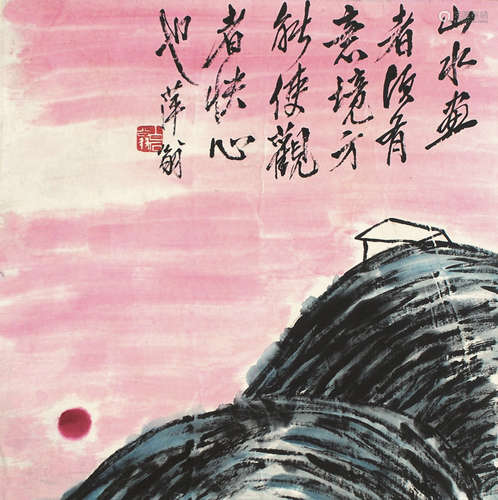 山水画
者須有
意境方
能使觀
者快心
也萍翁